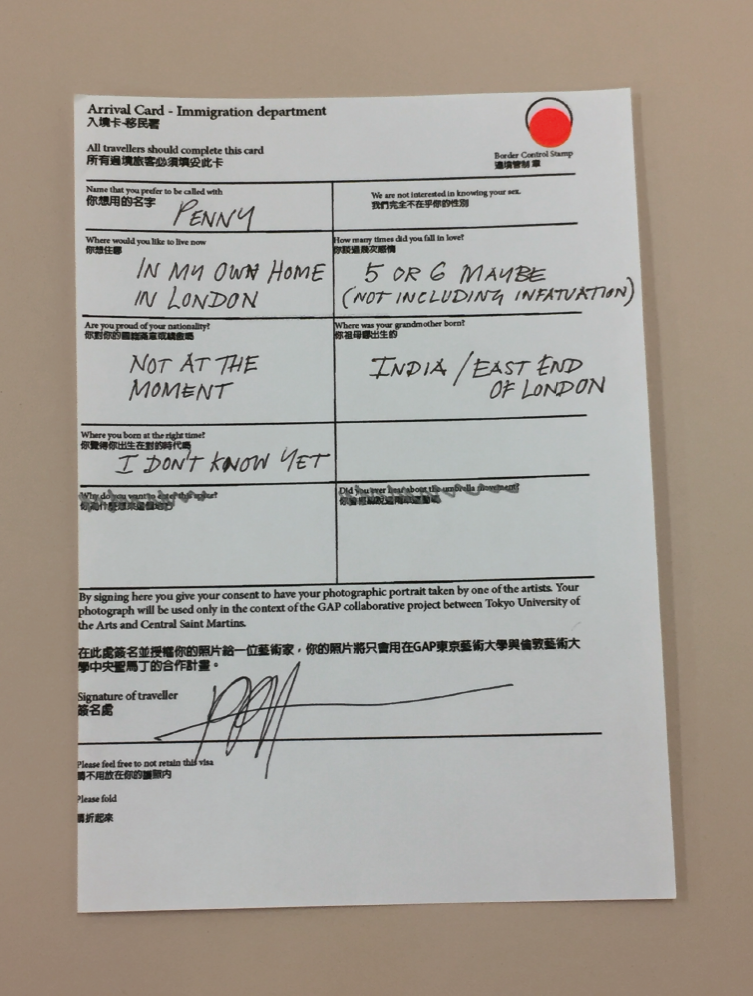 Arrival Card - Immigration department
入境卡-移民署
All travellers should complete this card
所有過境旅客必須填妥此卡
Border Control Stamp
邊境管制 章
Name that you prefer to be called with
你想用的名字
PENNY
We are not interested in knowing your sex.
我們完全不在乎你的性別
Where would you like to live now
你想住哪
IN MY OWN HOME
IN LONDON
How many times did you fall in love?
你談過幾次感情
5 OR 6 MAYBE
(NOT INCLUDING INFATUATION)
Are you proud of your nationality?
NOT AT THE
MOMENT
Where was your grandmother born?
你祖母哪出生的
INDIA / EAST END
OF LONDON
Where you born at the right time?
你覺得你出生在對的時代嗎
I DON'T KNOW YET
Why do you want to enter this space?
Did you ever hear about the umbrella movement?
By signing here you give your consent to have your photographic portrait taken by one of the artists. Your
photograph will be used only in the context of the GAP collaborative project between Tokyo University of
the Arts and Central Saint Martins.
在此處簽名並授權你的照片給一位藝術家，你的照片將只會用在GAP東京藝術大學與倫敦藝術大
學中央聖馬丁的合作計畫。
Signature of traveller
簽名處
Please feel free to not retain this visa
請不用放在你的護照內
Please fold
請折起來